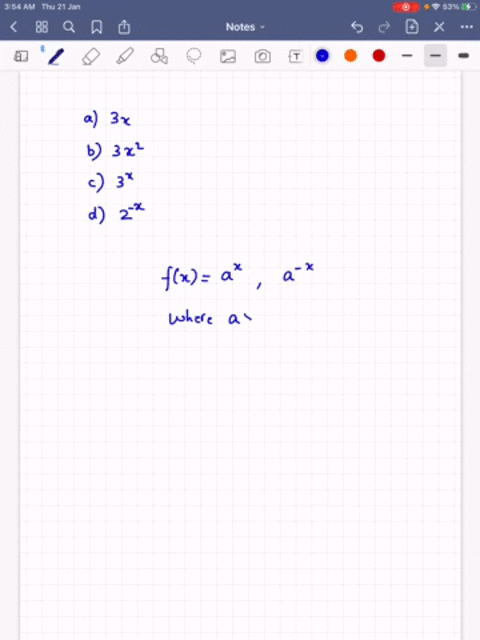 3:54 AM Thu 21 Jan
53%
Notes
a) 3x
b) 3x²
c) 3ˣ
d) 2⁻ˣ
f(x) = aˣ , a⁻ˣ
where a